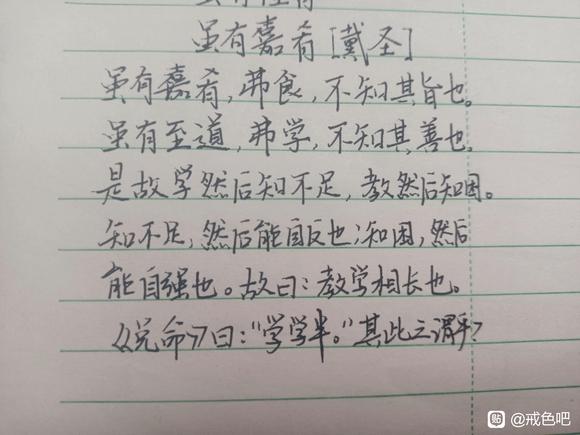 虽有嘉肴 [戴圣]
虽有嘉肴,弗食,不知其旨也。
虽有至道,弗学,不知其善也。
是故学然后知不足,教然后知困。
知不足,然后能自反也;知困,然后
能自强也。故曰:教学相长也。
《兑命》曰:“学学半。”其此之谓乎?
贴 @戒色吧